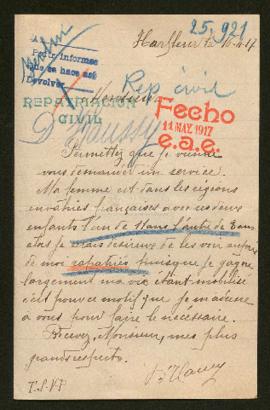 25,921
Harfleur le 10-4-17
Berlin
Pedir informes
que se hace así
Devolver
Rep civil
REPATRIACION
CIVIL
Fecho
11 MAY. 1917
e.a.e.
Permettez que je vienne
vous demander un service.
Ma femme est dans les régions
envahies françaises avec ses deux
enfants l'un de 11 ans l'autre de 8 ans
je serais désireux de les voir auprès
de moi rapatriés puisque je gagne
largement ma vie étant mobilisé
c'est pour ce motif que je m'adresse
à vous pour faire le nécessaire.
Recevez, Monsieur, mes plus
grands respects.
T.S.V.P